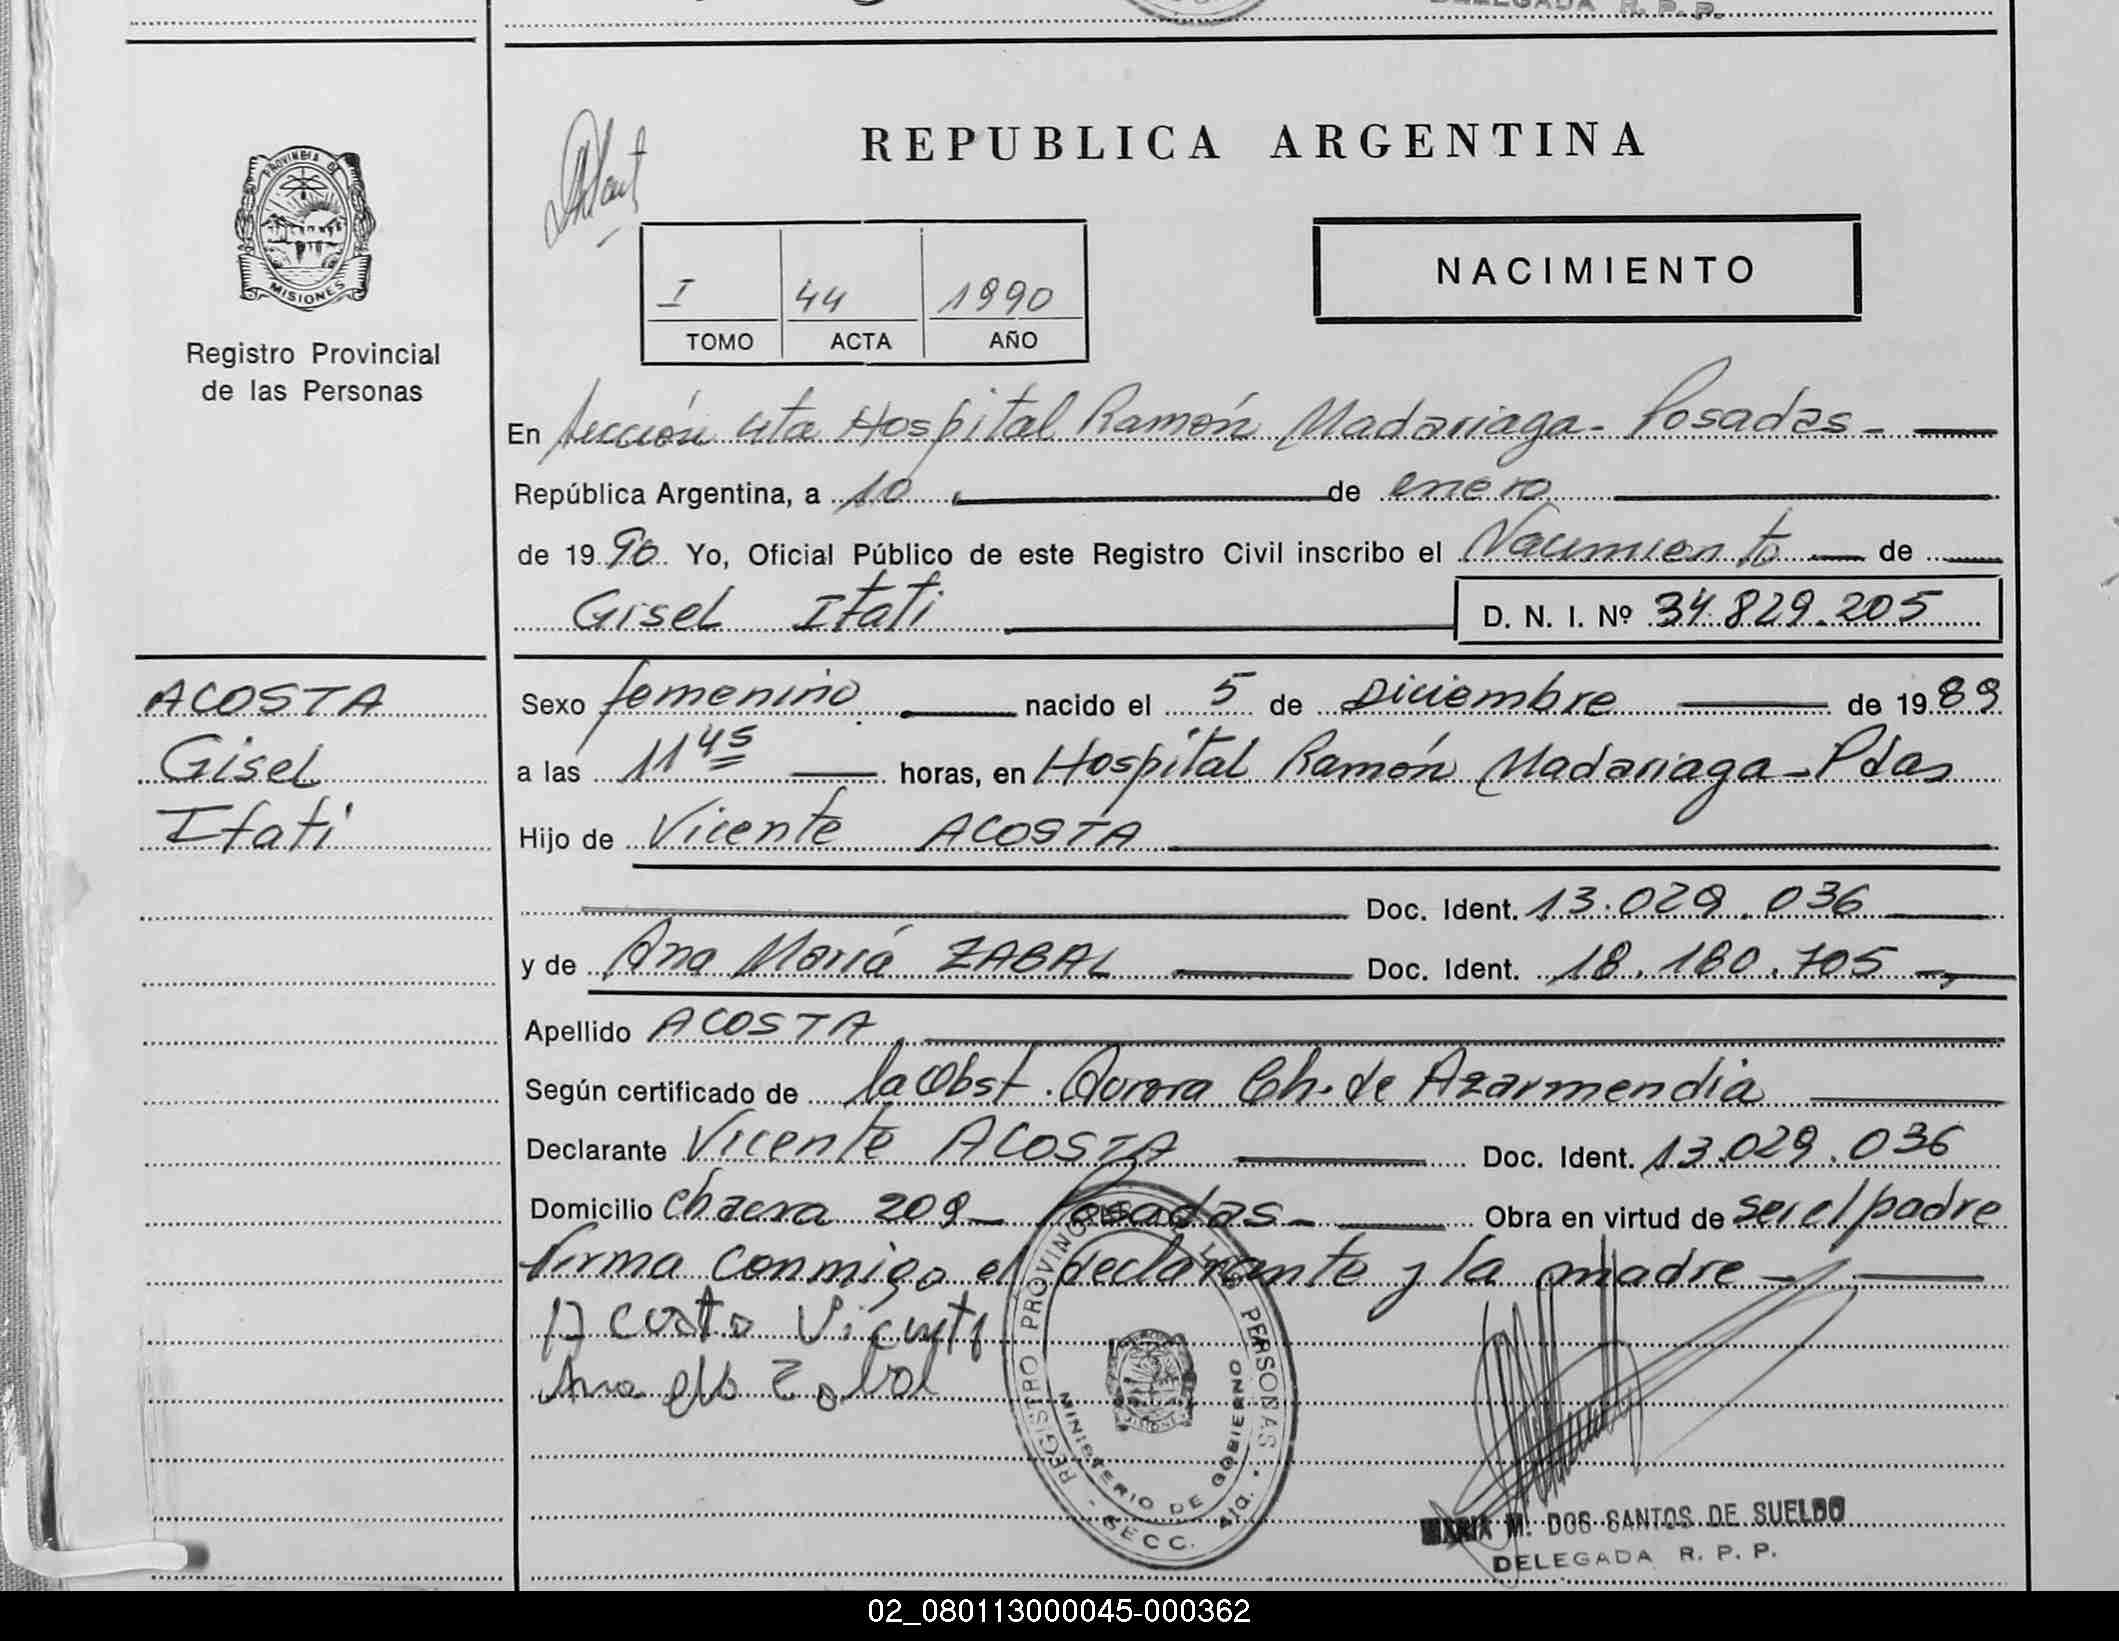 DELEGADA R. P. P.
REPUBLICA ARGENTINA
PROVINCIA DE
MISIONES
Registro Provincial
de las Personas
I 44 1990
TOMO ACTA AÑO
NACIMIENTO
En Sección 4ta Hospital Ramón Madariaga - Posadas -
República Argentina, a 10 de enero
de 1990 Yo, Oficial Público de este Registro Civil inscribo el Nacimiento de
Gisel Itati D. N. I. Nº 34.829.205
ACOSTA
Gisel
Itati
Sexo femenino nacido el 5 de Diciembre de 1989
a las 11 45 horas, en Hospital Ramón Madariaga - Pdas
Hijo de Vicente ACOSTA
Doc. Ident. 13.029.036
y de Ana María ZABAL Doc. Ident. 18.180.705
Apellido ACOSTA
Según certificado de la Obst. Aurora Ch. de Azarmendia
Declarante Vicente ACOSTA Doc. Ident. 13.029.036
Domicilio chacra 209 - Posadas - Obra en virtud de ser el padre
firma conmigo el declarante y la madre
Acosta Vicente
Ana Zabal
REGISTRO PROVINCIAL DE LAS PERSONAS
MINISTERIO DE GOBIERNO
SECC. 4ta.
MARIA M. DOS SANTOS DE SUELDO
DELEGADA R. P. P.
02_080113000045-000362